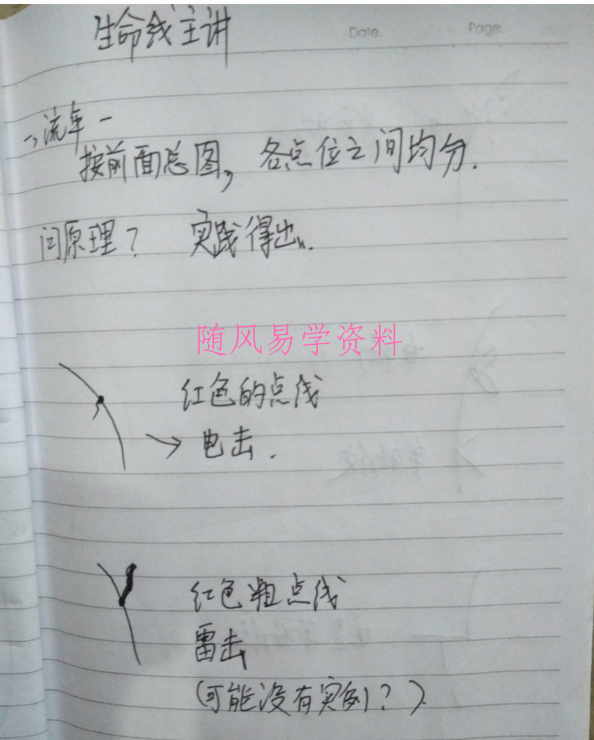 生命线主讲
Date.
Page.
一、流年一
按前面总图，各点位之间均分.
问原理？ 实践得出.
随风易学资料
红色的点线
→ 电击.
红色粗点线
雷击
(可能没有实例？).